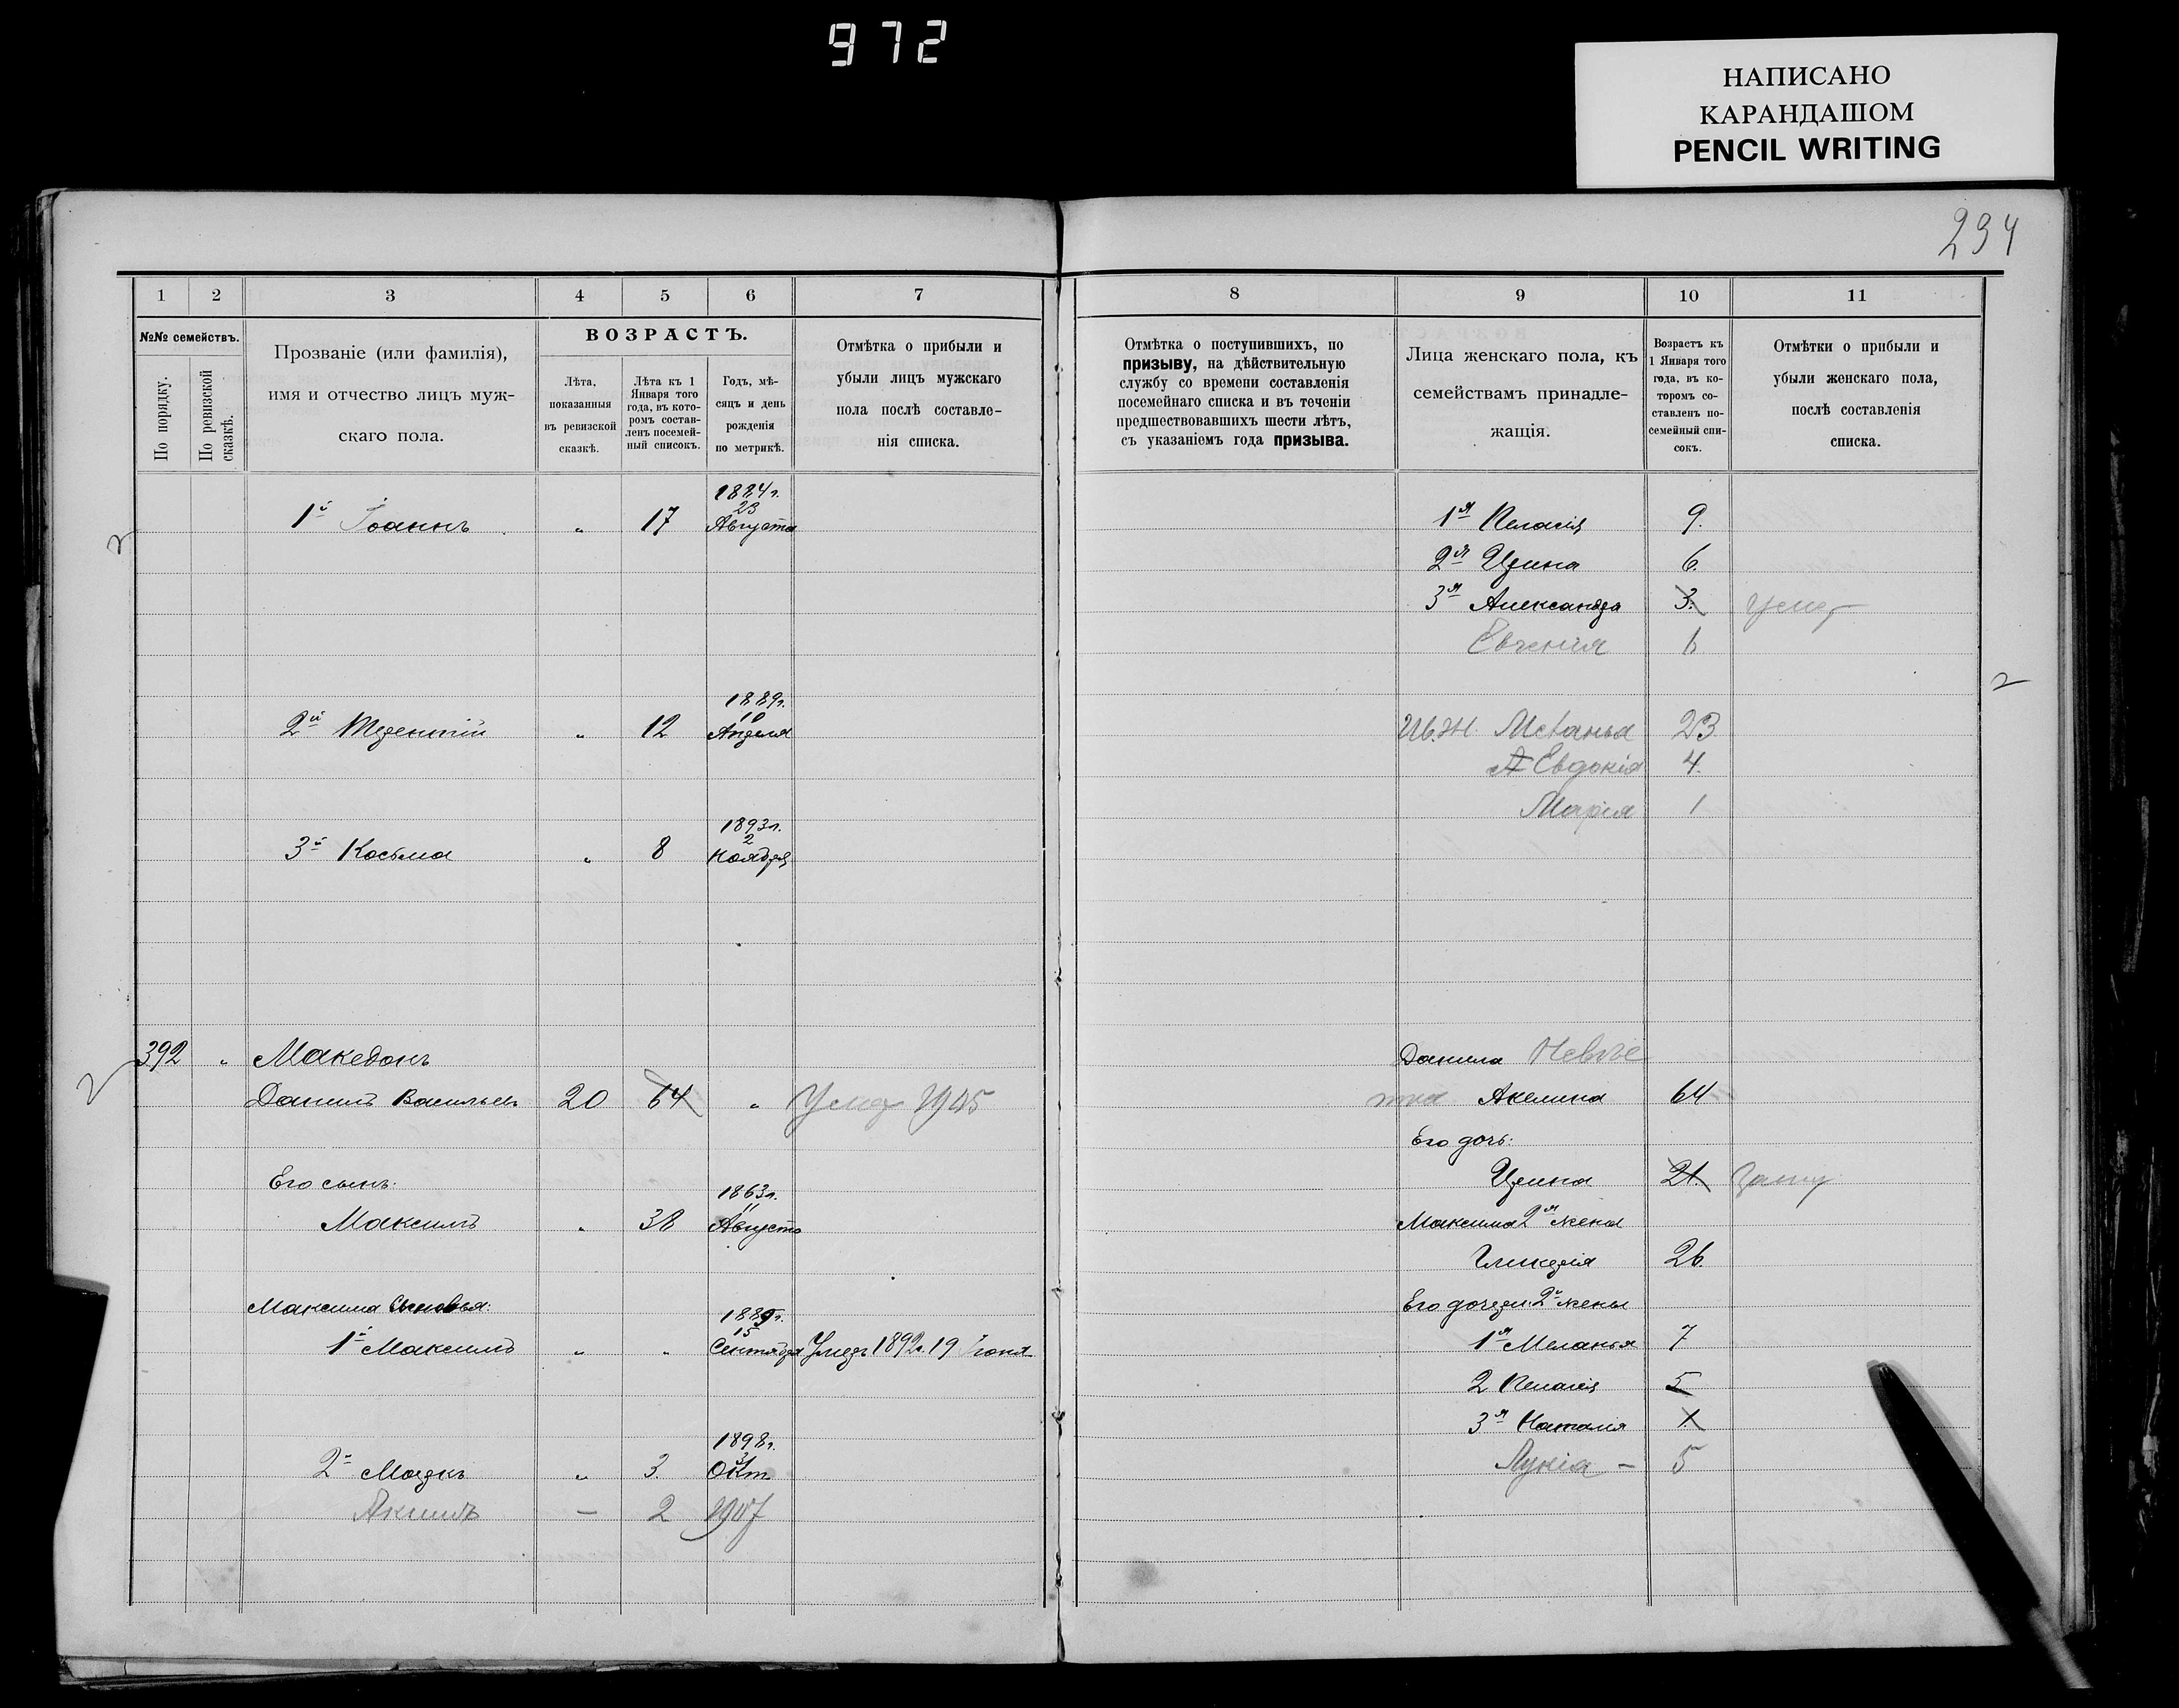 972
НАПИСАНО
КАРАНДАШОМ
PENCIL WRITING
234
1 2 3 4 5 6 7
№№ семействъ.
По порядку.
По ревизской сказкѣ.
Прозваніе (или фамилія),
имя и отчество лицъ муж-
скаго пола.
ВОЗРАСТЪ.
Лѣта,
показанныя
въ ревизской
сказкѣ.
Лѣта къ 1
Января того
года, въ кото-
ромъ состав-
ленъ посемей-
ный списокъ.
Годъ, мѣ-
сяцъ и день
рожденія
по метрикѣ.
Отмѣтка о прибыли и
убыли лицъ мужскаго
пола послѣ составле-
нія списка.
1884 г.
23
1й Іоаннъ „ 17 Августа
1889 г.
10
2й Терентій „ 12 Апреля
1893 г.
2
3й Косьма „ 8 Ноября
392 „ Македонъ
Данiилъ Васильевъ 20 64 „ Умер 1905
Его сынъ:
1863 г.
11
Максимъ „ 38 Августа
Максима Сыновья:
1889 г.
15
1й Максимъ „ „ Сентября Умеръ 1892 г. 19 Іюня
1898 г.
31
2й Маркъ „ 3. Окт
Акимъ — 2 1907
8 9 10 11
Отмѣтка о поступившихъ, по
призыву, на дѣйствительную
службу со времени составленія
посемейнаго списка и въ теченіи
предшествовавшихъ шести лѣтъ,
съ указаніемъ года призыва.
Лица женскаго пола, къ
семействамъ принадле-
жащія.
Возрастъ къ
1 Января того
года, въ ко-
торомъ со-
ставленъ по-
семейный спи-
сокъ.
Отмѣтки о прибыли и
убыли женскаго пола,
послѣ составленія
списка.
1я Пелагія 9.
2я Ирина 6.
3я Александра 3. умер
Евгенія
Ив. ж. 23
Евдокія 4.
Марія 1
Данила
Акелина 64
Его дочь:
Ирина 21. Заму
Максима 2я жена
Гликерія 26.
Его дочери 2й жены
1я Меланья 7
2 Пелагія 5
3я Наталія 1
Лукія — 5